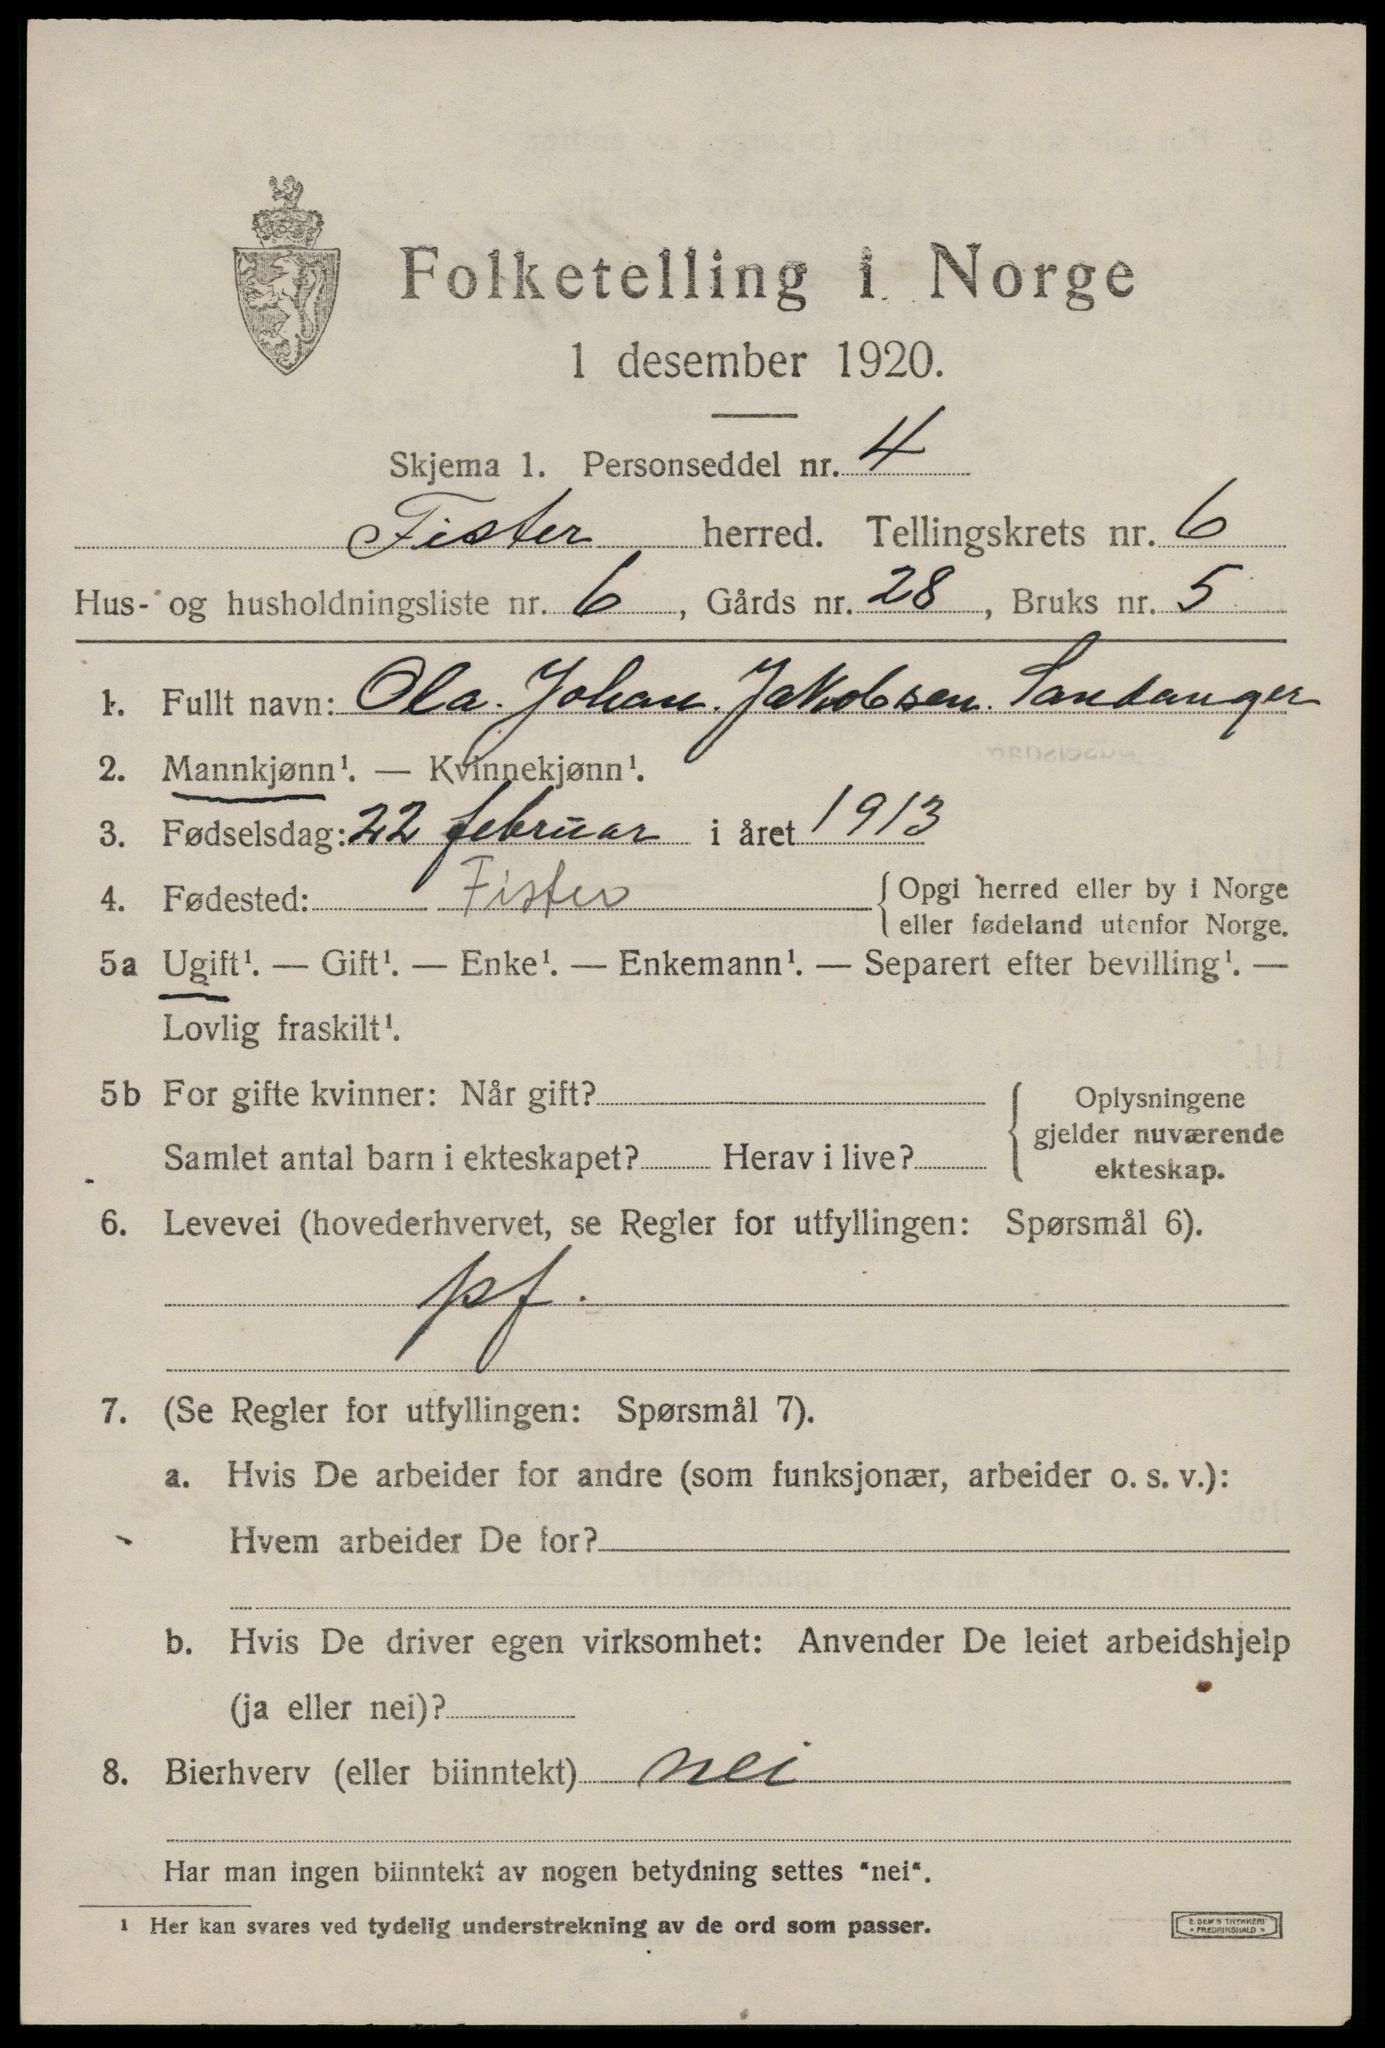 Folketelling i Norge
1 desember 1920.
Skjema 1. Personseddel nr. 4
Fister herred. Tellingskrets nr. 6
Hus- og husholdningsliste nr. 6, Gårds nr. 28, Bruks nr. 5
1. Fullt navn: Ola. Johan. Jakobsen. Sandanger
2. Mannkjønn¹. — Kvinnekjønn¹.
3. Fødselsdag: 22 februar i året 1913
4. Fødested: Fister { Opgi herred eller by i Norge
eller fødeland utenfor Norge.
5a Ugift¹. — Gift¹. — Enke¹. — Enkemann¹. — Separert efter bevilling¹. —
Lovlig fraskilt¹.
5b For gifte kvinner: Når gift? { Oplysningene
gjelder nuværende
Samlet antal barn i ekteskapet? Herav i live? ekteskap.
6. Levevei (hovederhvervet, se Regler for utfyllingen: Spørsmål 6).
pf.
7. (Se Regler for utfyllingen: Spørsmål 7).
a. Hvis De arbeider for andre (som funksjonær, arbeider o. s. v.):
Hvem arbeider De for?
b. Hvis De driver egen virksomhet: Anvender De leiet arbeidshjelp
(ja eller nei)?
8. Bierhverv (eller biinntekt) nei
Har man ingen biinntekt av nogen betydning settes "nei".
¹ Her kan svares ved tydelig understrekning av de ord som passer.
E. SEM'S TRYKKERI
FREDRIKSHALD